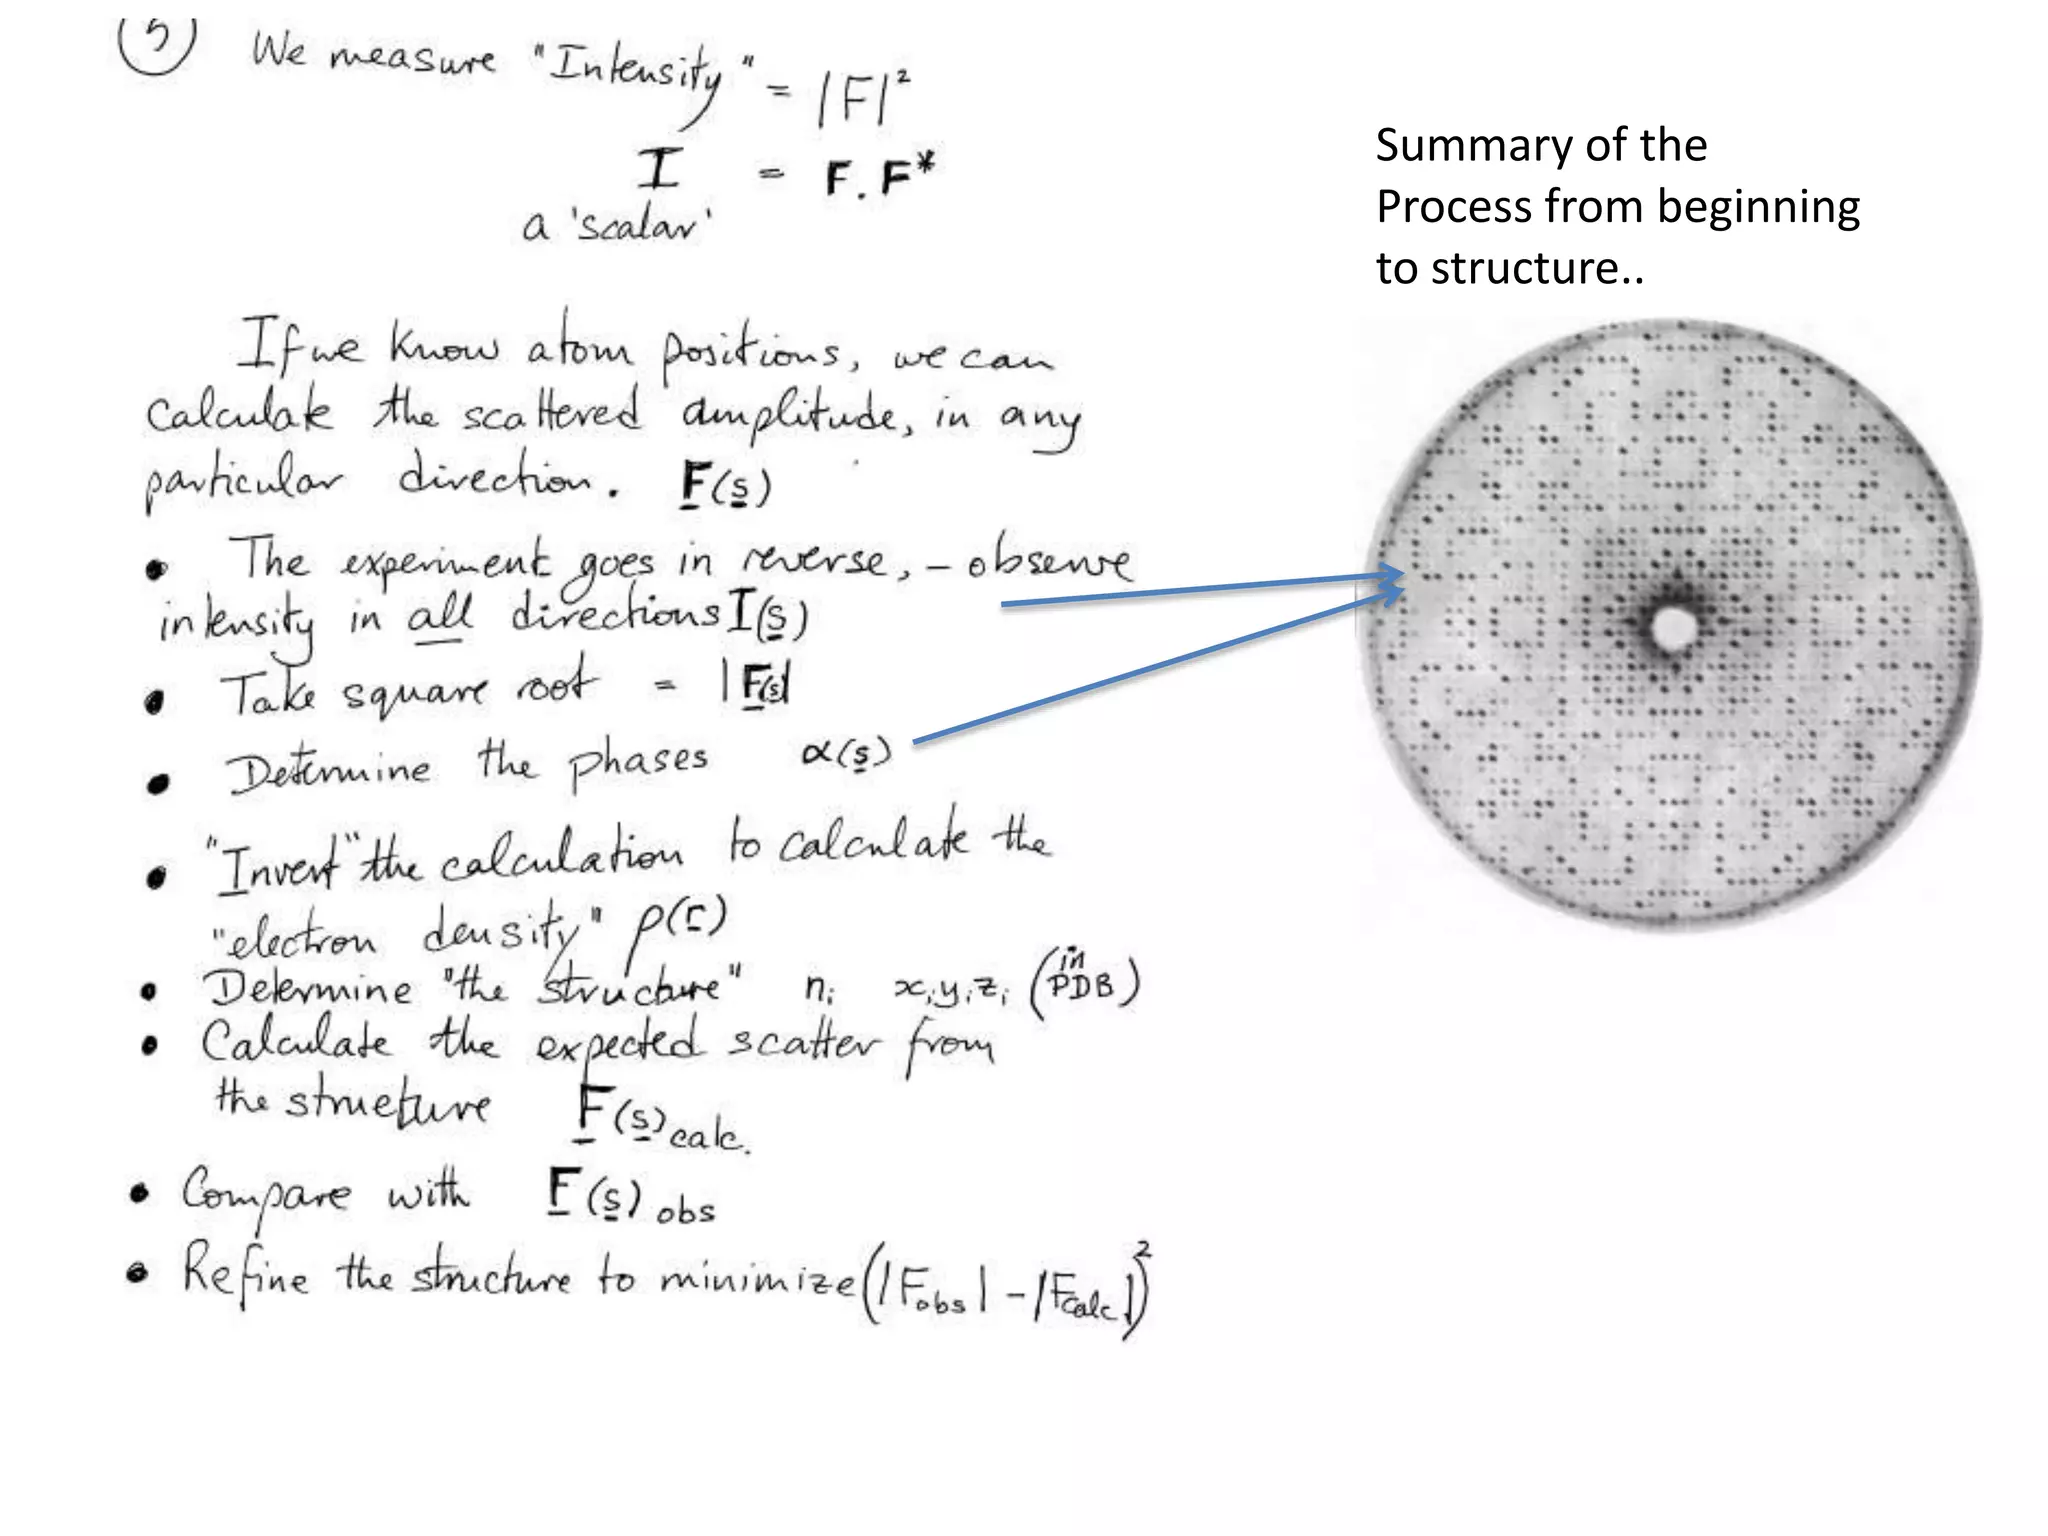 5 We measure "Intensity" = |F|²
I = F.F*
a 'scalar'
If we know atom positions, we can
calculate the scattered amplitude, in any
particular direction. F(s)
• The experiment goes in reverse, – observe
intensity in all directions I(s)
• Take square root = |F(s)|
• Determine the phases α(s)
• "Invert" the calculation to calculate the
"electron density" ρ(r)
• Determine "the structure" nᵢ xᵢyᵢzᵢ (in PDB)
• Calculate the expected scatter from
the structure F(s)calc.
• Compare with F(s)obs
• Refine the structure to minimize (|Fobs| - |Fcalc|)²
Summary of the
Process from beginning
to structure..